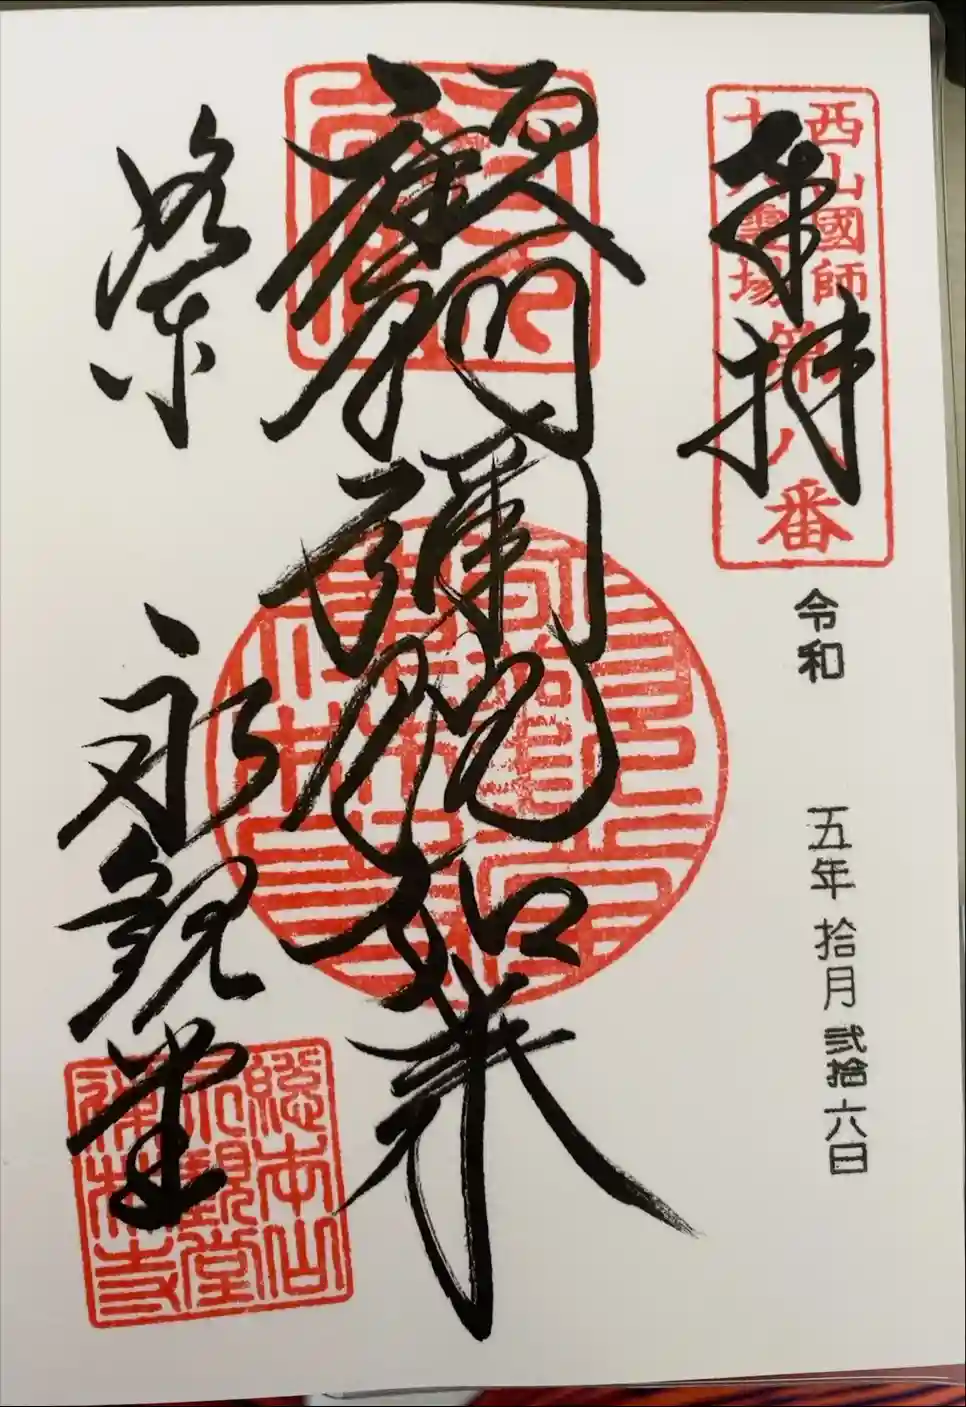 西山國師
十六霊場
第八番
奉拝
令和 五年 拾月 弐拾六日
顧阿彌陀如来
洛東
永観堂
総本山
永観堂
禅林寺